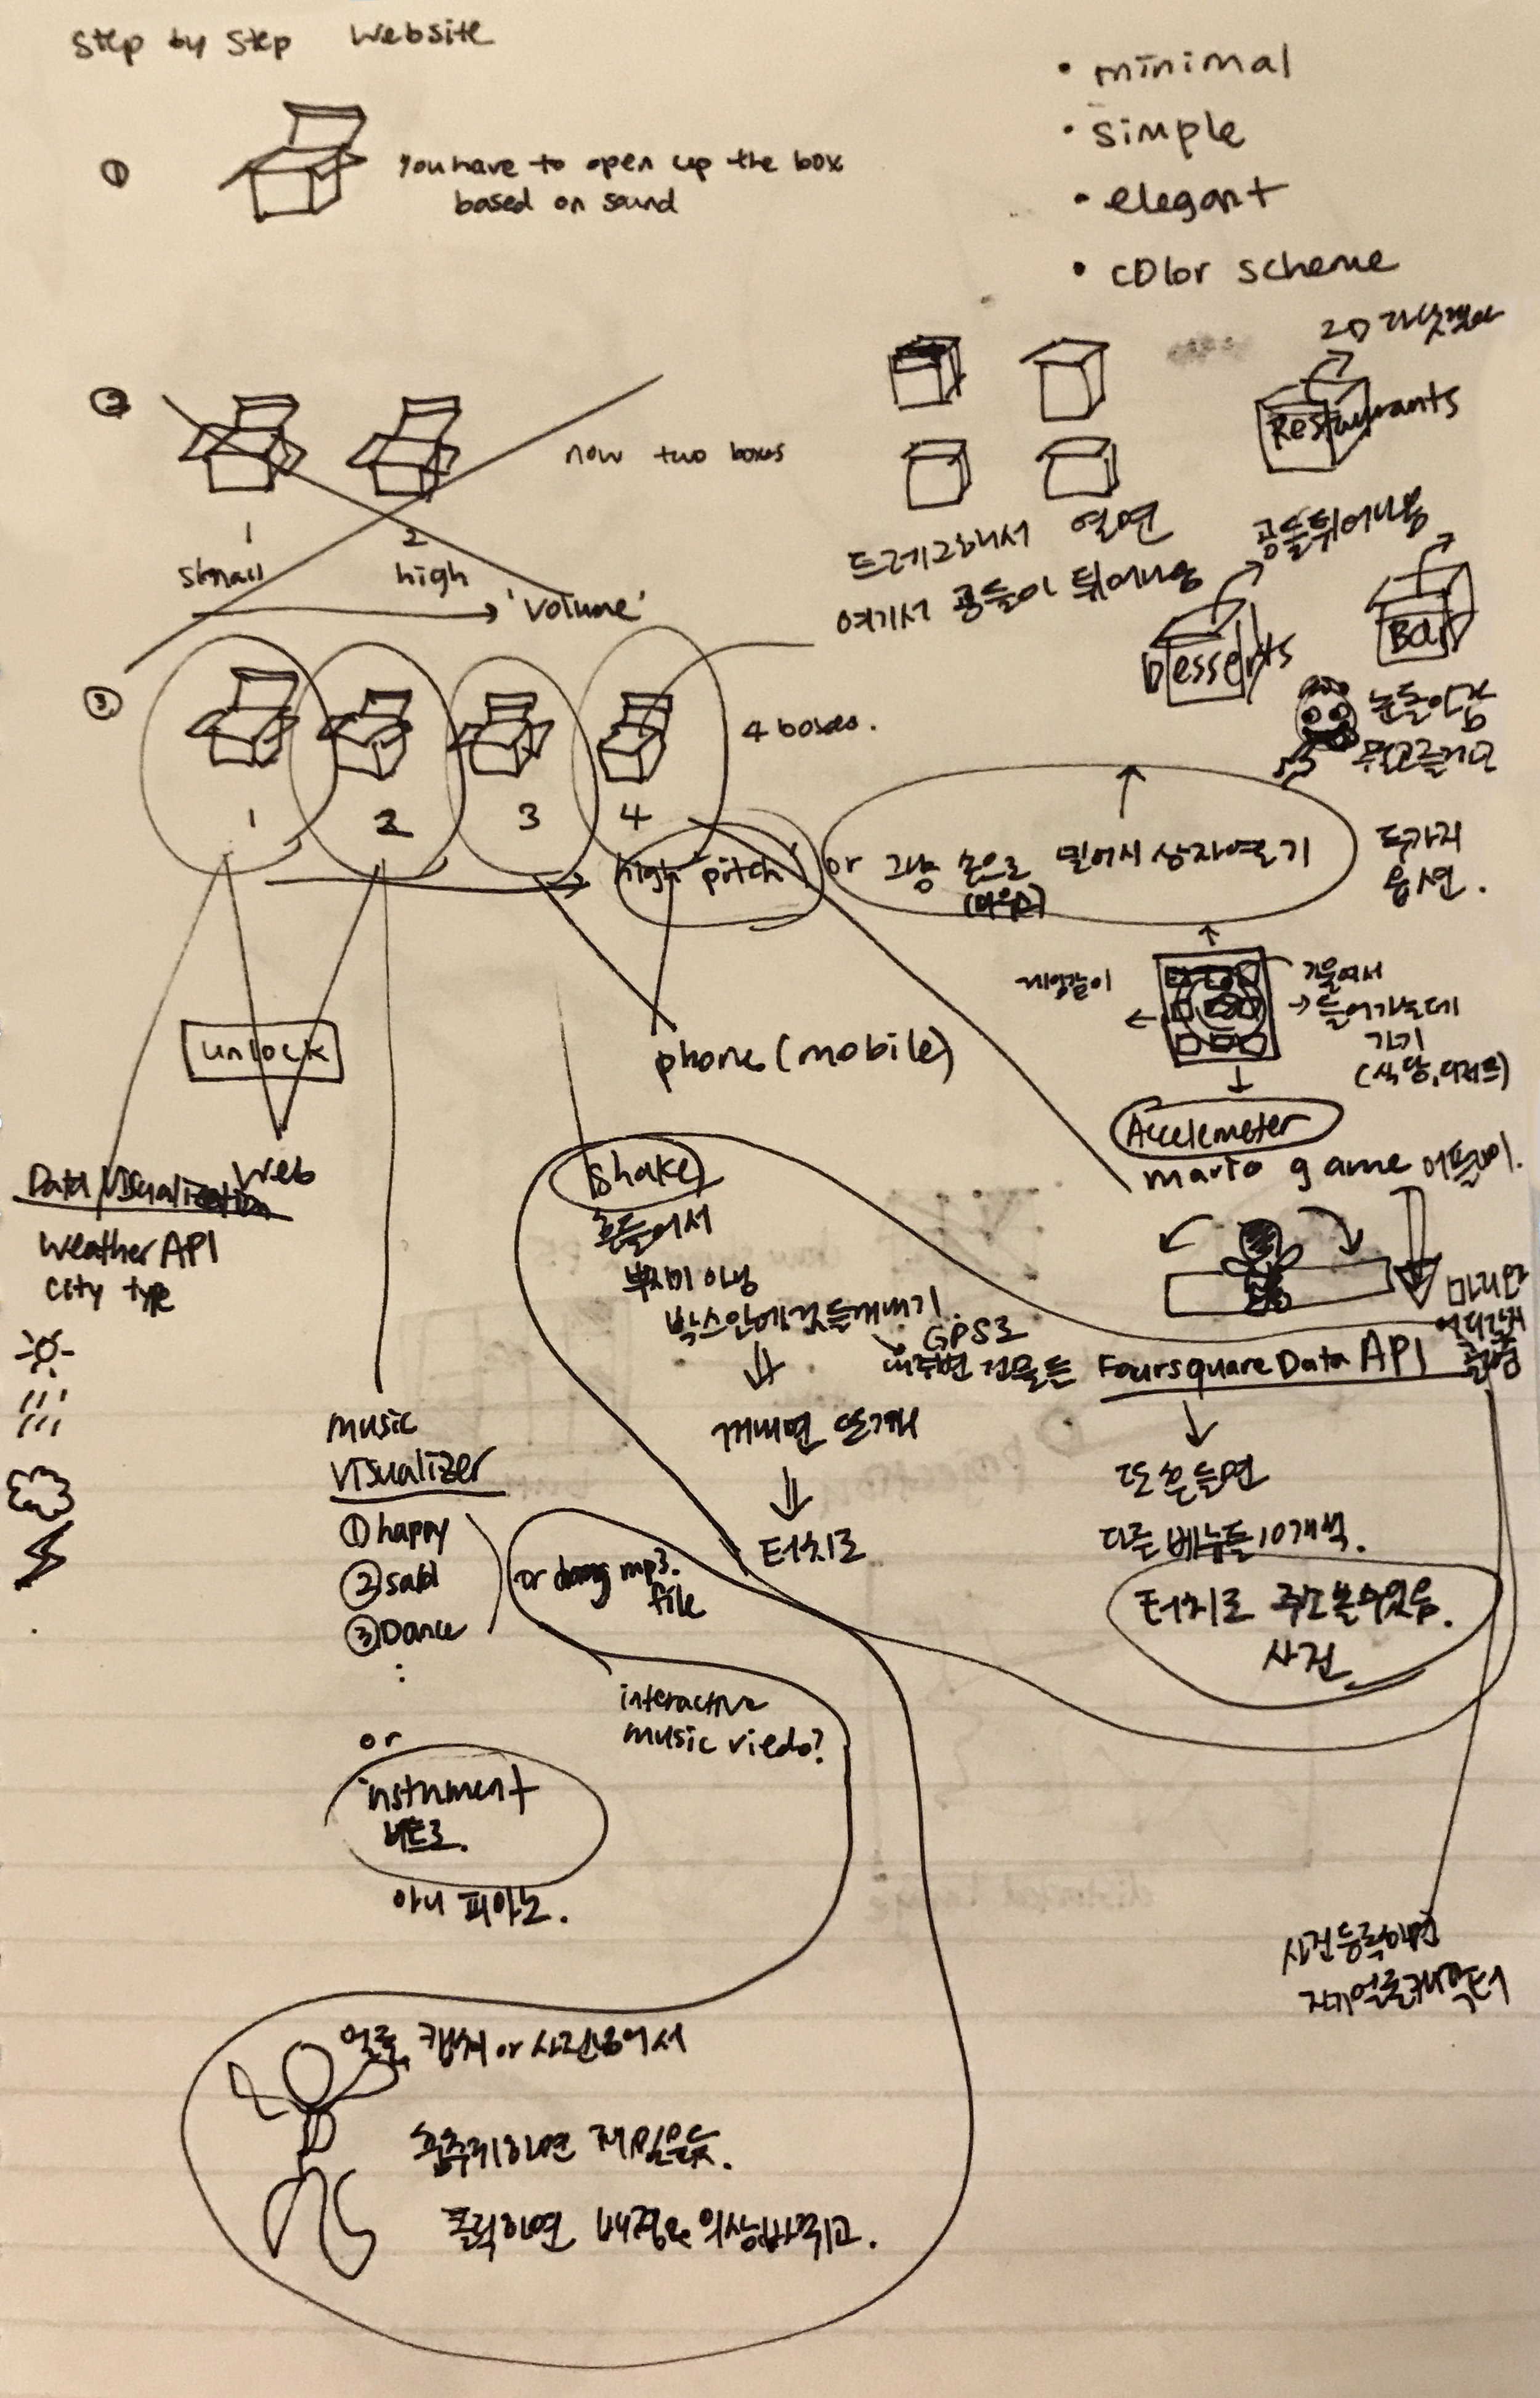 Step by Step Website
• minimal
• simple
• elegant
• color scheme
①
You have to open up the box
based on sound
②
now two boxes
1
2
small
high
'volume'
드레그해서 열면
여기서 공들이 튀어나옴
2D
Restaurants
공들튀어나옴
Desserts
Bar
③
4 boxes.
1
2
3
4
high "pitch"
or 그냥 손으로 밀어서 상자열기
(마우스)
두가지
옵션.
unlock
Web
phone (mobile)
게임같이
기울여서
들어가는데
가기
(식당, 디저트)
Accelemeter
mario game 어플나이.
Data Visualization
Weather API
City type
shake
흔들어서
박스안에것들꺼내기.
GPS로
내주변 건물들
Foursquare Data API
꺼내면 뜨게
터치로
또 흔들면
다른 메뉴들 10개씩.
터치로 주소볼수있음.
사진
music
visualizer
① happy
② sad
③ Dance
:
or mp3.
file
interactive
music viedo?
or
instrument
비트로.
아니 피아노.
사진등록하면
자기얼굴캐릭터
얼굴 캡쳐 or 사진넣어서
춤추게하면 재밌을듯.
클릭하면 배경 & 의상바뀌고.